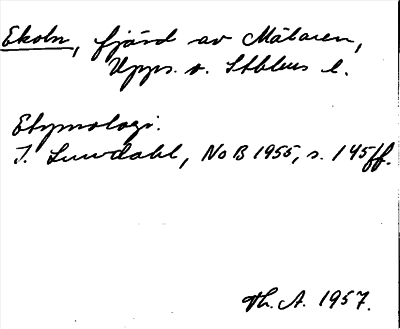 Ekoln, fjärd av Mälaren,
Upps. o. Sthlms l.
Etymologi:
I. Lundahl, NoB 1955, s. 145ff.
Th. A. 1957.